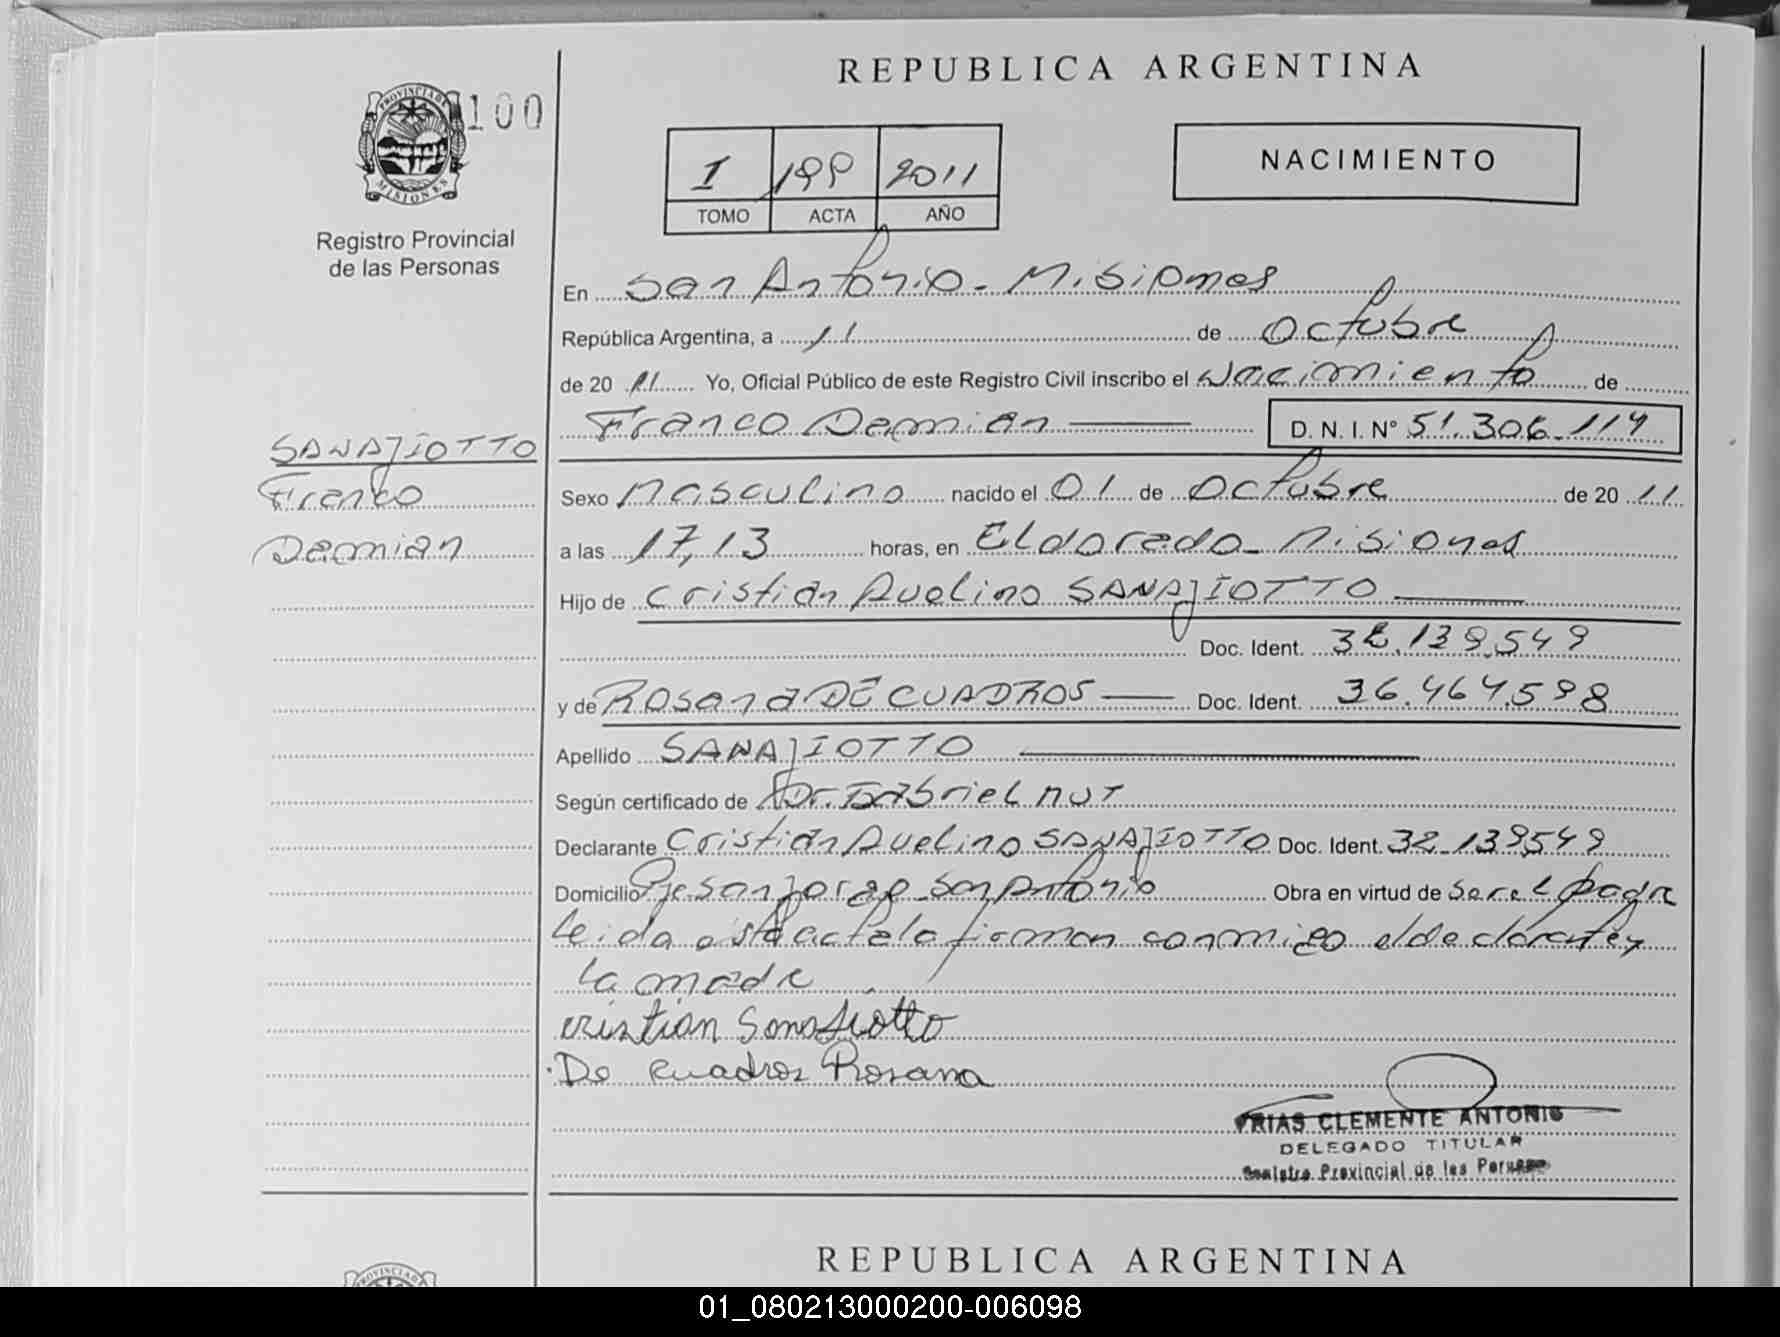 REPUBLICA ARGENTINA
PROVINCIA DE
MISIONES
100
Registro Provincial
de las Personas
I 199 2011
TOMO ACTA AÑO
NACIMIENTO
En San Antonio - Misiones
República Argentina, a 11 de Octubre
de 20 11 Yo, Oficial Público de este Registro Civil inscribo el Nacimiento de
Franco Demian D. N. I. N° 51.306.114
SANAJIOTTO
Franco
Demian
Sexo Masculino nacido el 01 de Octubre de 20 11
a las 17,13 horas, en Eldorado - Misiones
Hijo de Cristian Avelino SANAJIOTTO
Doc. Ident. 32.139.549
y de Rosana DE CUADROS Doc. Ident. 36.464.598
Apellido SANAJIOTTO
Según certificado de Dr. Gabriel NUT
Declarante Cristian Avelino SANAJIOTTO Doc. Ident. 32.139549
Domicilio Pje San Jorge - San Antonio Obra en virtud de ser el padre
leida esta acta la firman conmigo el declarante y
la madre
cristian Sanajiotto
De cuadros Rosana
FRIAS CLEMENTE ANTONIO
DELEGADO TITULAR
Registro Provincial de las Personas
REPUBLICA ARGENTINA
PROVINCIA DE
01_080213000200-006098